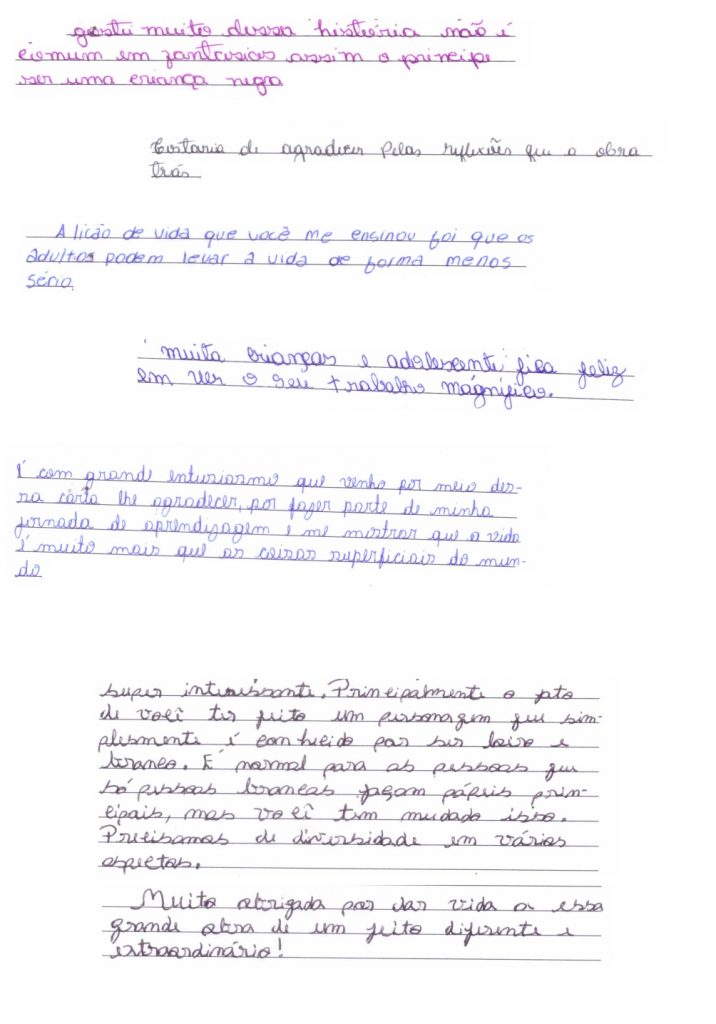 gostei muito dessa história não é
comum em fantasias assim o principe
ser uma criança negra
Gostaria de agradecer pelas reflexões que a obra
trás
A lição de vida que você me ensinou foi que os
adultos podem levar a vida de forma menos
séria.
muita crianças e adolescente, fica feliz
em ver o seu trabalho mágnifico.
É com grande entusiasmo que venho por meio des-
sa carta lhe agradecer, por fazer parte de minha
jornada de aprendizagem e me mostrar que a vida
é muito mais que as coisas superficiais do mun-
do
super interessante. Principalmente o fato
de você ter feito um personagem que sim-
plesmente é conhecido por ser loiro e
branco. É normal para as pessoas que
só pessoas brancas façam pápeis prin-
cipais, mas você tem mudado isso.
Precisamos de diversidade em vários
aspectos.
Muito obrigada por dar vida a essa
grande obra de um jeito diferente e
extraordinário!